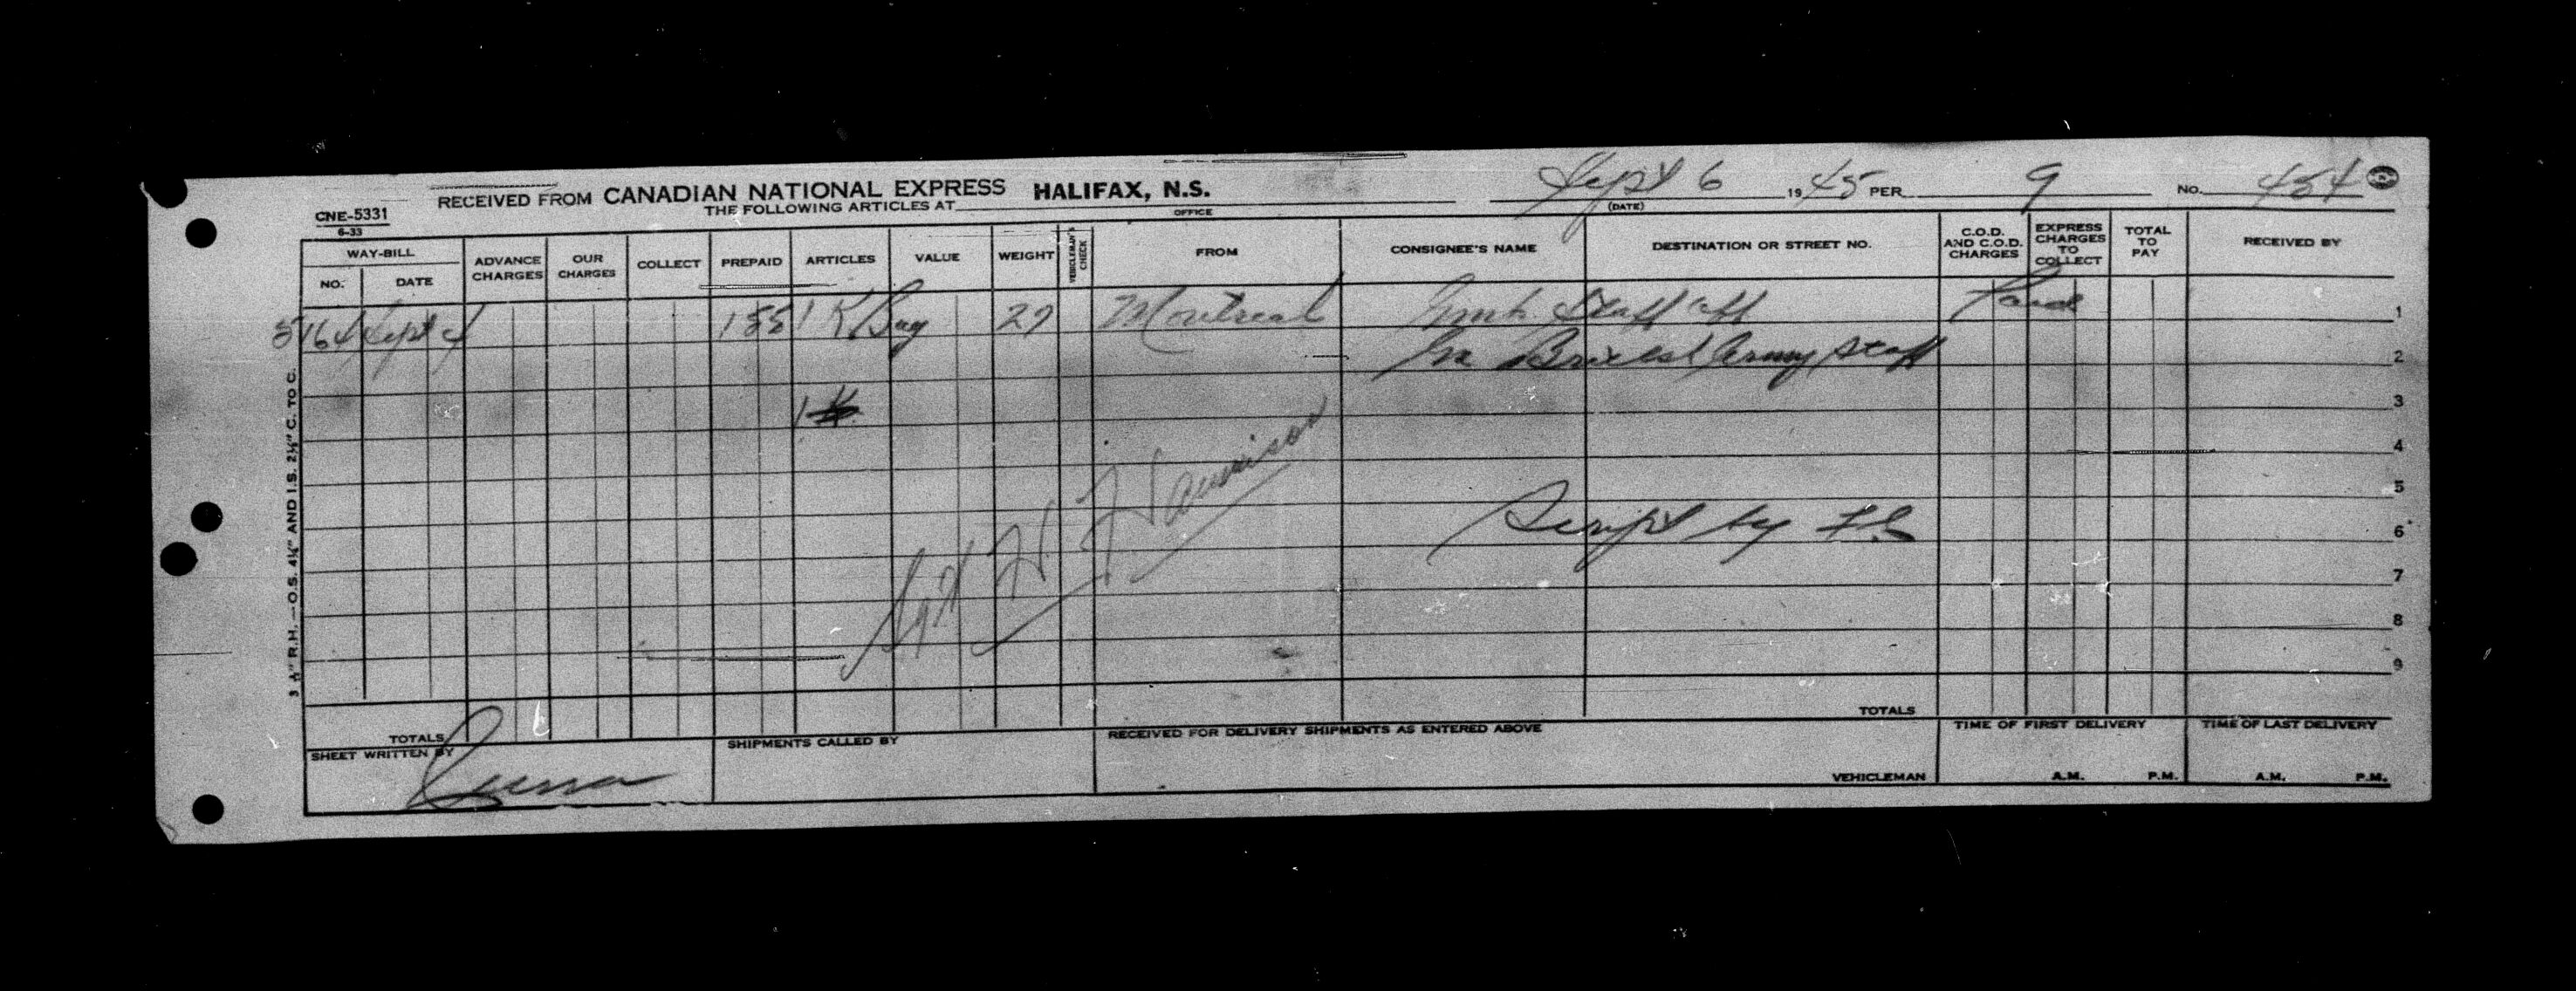 RECEIVED FROM CANADIAN NATIONAL EXPRESS HALIFAX, N.S. Sept 6 1945 PER 9 No. 454
CNE-5331 THE FOLLOWING ARTICLES AT OFFICE (DATE)
6-33
WAY-BILL ADVANCE CHARGES OUR CHARGES COLLECT PREPAID ARTICLES VALUE WEIGHT VEHICLEMAN'S CHECK FROM CONSIGNEE'S NAME DESTINATION OR STREET NO. C.O.D. AND C.O.D. CHARGES EXPRESS CHARGES TO COLLECT TOTAL TO PAY RECEIVED BY
NO. DATE
5164 Sept 4 155 1 K Bag 27 Montreal Emb. Staff Off Paid 1
Army Staff 2
1 K 3
4
5
Script by 6
Sgt H Harrison
7
8
9
TOTALS
TOTALS
SHEET WRITTEN BY SHIPMENTS CALLED BY RECEIVED FOR DELIVERY SHIPMENTS AS ENTERED ABOVE TIME OF FIRST DELIVERY TIME OF LAST DELIVERY
VEHICLEMAN A.M. P.M. A.M. P.M.
R.H.—O.S. 4¼" AND I.S. 2⅛" C. TO C.